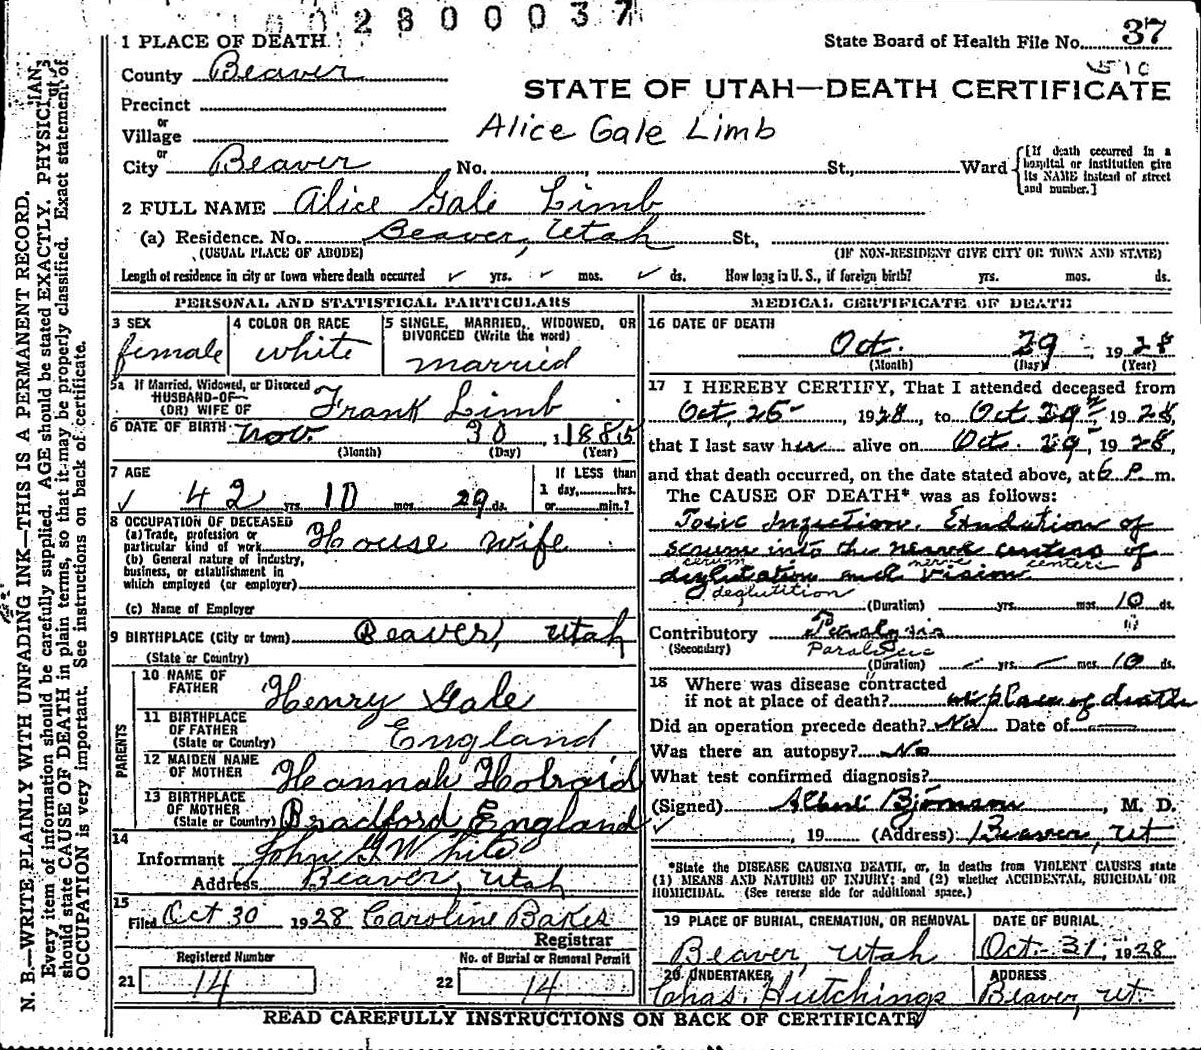 02800037
1 PLACE OF DEATH
State Board of Health File No. 37
County Beaver
STATE OF UTAH—DEATH CERTIFICATE
Precinct
or
Village
Alice Gale Limb
or
City Beaver No. St., Ward
[If death occurred in a hospital or institution give its NAME instead of street and number.]
2 FULL NAME Alice Gale Limb
(a) Residence. No. Beaver, Utah St.,
(USUAL PLACE OF ABODE) (IF NON-RESIDENT GIVE CITY OR TOWN AND STATE)
Length of residence in city or town where death occurred ✓ yrs. ✓ mos. ✓ ds. How long in U. S., if foreign birth? yrs. mos. ds.
PERSONAL AND STATISTICAL PARTICULARS
3 SEX
female
4 COLOR OR RACE
white
5 SINGLE, MARRIED, WIDOWED, OR DIVORCED (Write the word)
married
5a If Married, Widowed, or Divorced
HUSBAND OF
(OR) WIFE OF Frank Limb
6 DATE OF BIRTH Nov. 30, 1885
(Month) (Day) (Year)
7 AGE
✓ 42 yrs. 10 mos. 29 ds.
If LESS than
1 day, hrs.
or min.?
8 OCCUPATION OF DECEASED
(a) Trade, profession or
particular kind of work House wife
(b) General nature of industry,
business, or establishment in
which employed (or employer)
(c) Name of Employer
9 BIRTHPLACE (City or town) Beaver, Utah
(State or Country)
PARENTS
10 NAME OF
FATHER Henry Gale
11 BIRTHPLACE
OF FATHER England
(State or Country)
12 MAIDEN NAME
OF MOTHER Hannah Holroid
13 BIRTHPLACE
OF MOTHER
(State or Country) Bradford England
14
Informant John G White
Address Beaver, Utah
15
Filed Oct 30 1928 Caroline Bakes
Registrar
Registered Number
21 14
No. of Burial or Removal Permit
22 14
MEDICAL CERTIFICATE OF DEATH
16 DATE OF DEATH
Oct. 29, 1928
(Month) (Day) (Year)
17 I HEREBY CERTIFY, That I attended deceased from
Oct. 25 1928, to Oct 29 1928,
that I last saw her alive on Oct. 29, 1928,
and that death occurred, on the date stated above, at 6 P. m.
The CAUSE OF DEATH* was as follows:
Toxic Injection. Exudation of
serum into the nerve centers of
serum nerve centers
deglutation and vision
deglutition
(Duration) yrs. mos. 10 ds.
Contributory Paralysis
(Secondary) Paralysis
(Duration) yrs. mos. 10 ds.
18 Where was disease contracted
if not at place of death? at place of death
Did an operation precede death? No Date of
Was there an autopsy? No
What test confirmed diagnosis?
(Signed) Albert Bjornson, M. D.
✓ , 19 (Address) Beaver, Ut
*State the DISEASE CAUSING DEATH, or, in deaths from VIOLENT CAUSES state
(1) MEANS AND NATURE OF INJURY; and (2) whether ACCIDENTAL, SUICIDAL OR
HOMICIDAL. (See reverse side for additional space.)
19 PLACE OF BURIAL, CREMATION, OR REMOVAL
Beaver, Utah
DATE OF BURIAL
Oct. 31, 1928
20 UNDERTAKER
Chas. Hutchings
ADDRESS
Beaver, Ut.
READ CAREFULLY INSTRUCTIONS ON BACK OF CERTIFICATE
N. B.—WRITE PLAINLY WITH UNFADING INK—THIS IS A PERMANENT RECORD.
Every item of information should be carefully supplied. AGE should be stated EXACTLY. PHYSICIAN
should state CAUSE OF DEATH in plain terms, so that it may be properly classified. Exact statement of
OCCUPATION is very important. See instructions on back of certificate.